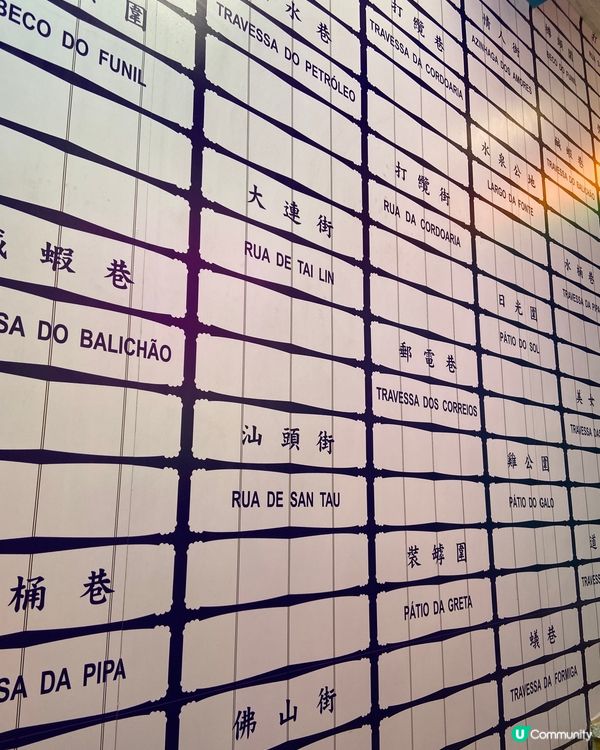 圍
BECO DO FUNIL
蝦巷
SA DO BALICHÃO
桶巷
SA DA PIPA
水巷
TRAVESSA DO PETRÓLEO
大連街
RUA DE TAI LIN
汕頭街
RUA DE SAN TAU
佛山街
打纜巷
TRAVESSA DA CORDOARIA
打纜街
RUA DA CORDOARIA
郵電巷
TRAVESSA DOS CORREIOS
裝罅圍
PÁTIO DA GRETA
情人街
AZINHAGA DOS AMORES
水泉公地
LARGO DA FONTE
日光圍
PÁTIO DO SOL
雞公圍
PÁTIO DO GALO
蟻巷
TRAVESSA DA FORMIGA
BECO DO FUNIL
鹹蝦巷
TRAVESSA DO BALICHÃO
水桶巷
TRAVESSA DA PIPA
美女
TRAVESSA DAS
道
TRAVESS
U Community